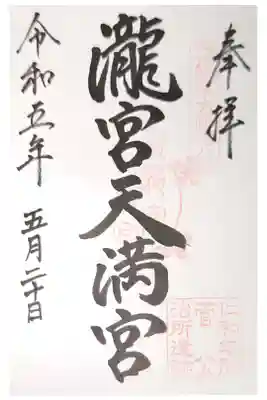 奉拝
瀧宮天満宮
令和五年 五月二十日